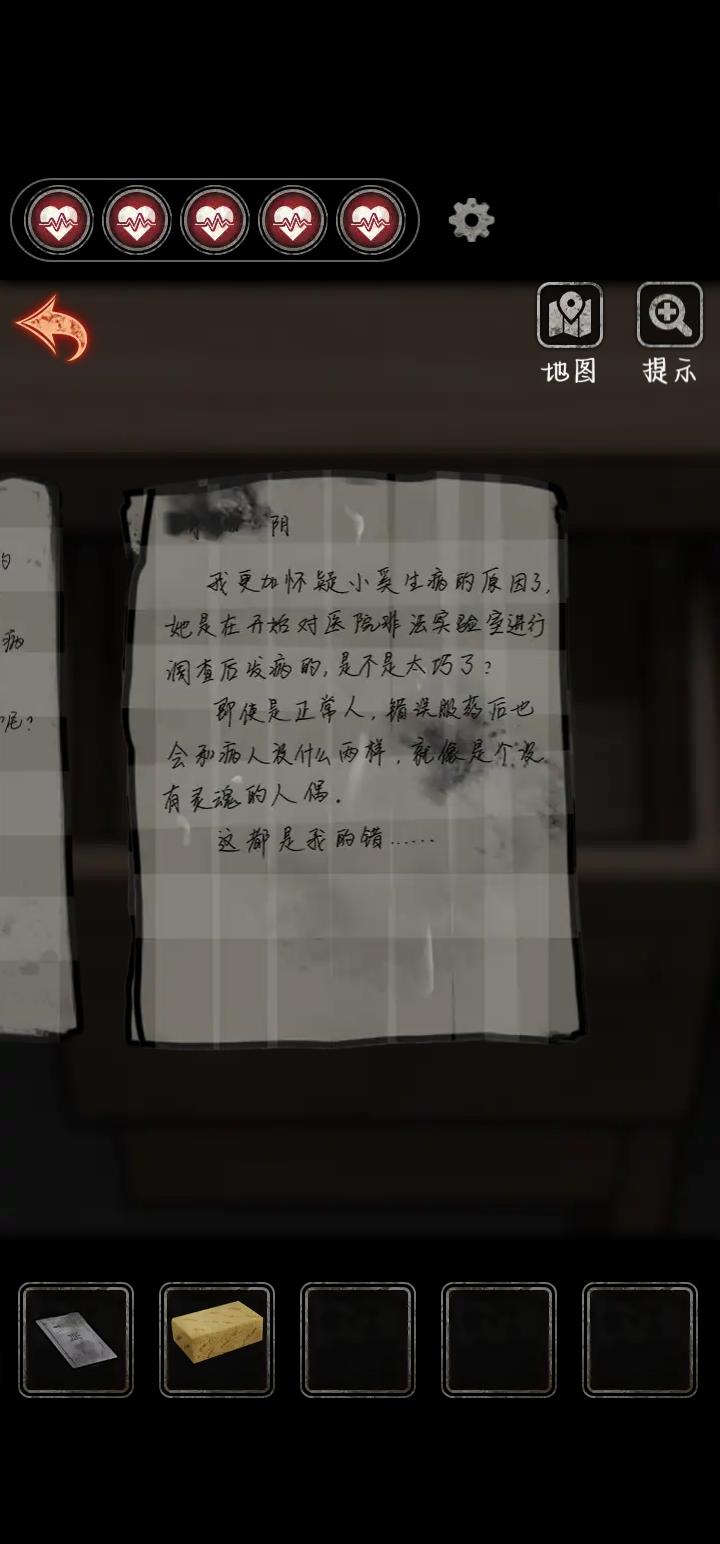 地图
提示
的
病
呢？
阴
我更加怀疑小奚生病的原因了，
她是在开始对医院非法实验室进行
调查后发病的，是不是太巧了？
即使是正常人，错误服药后也
会和病人没什么两样，就像是个没
有灵魂的人偶。
这都是我的错……